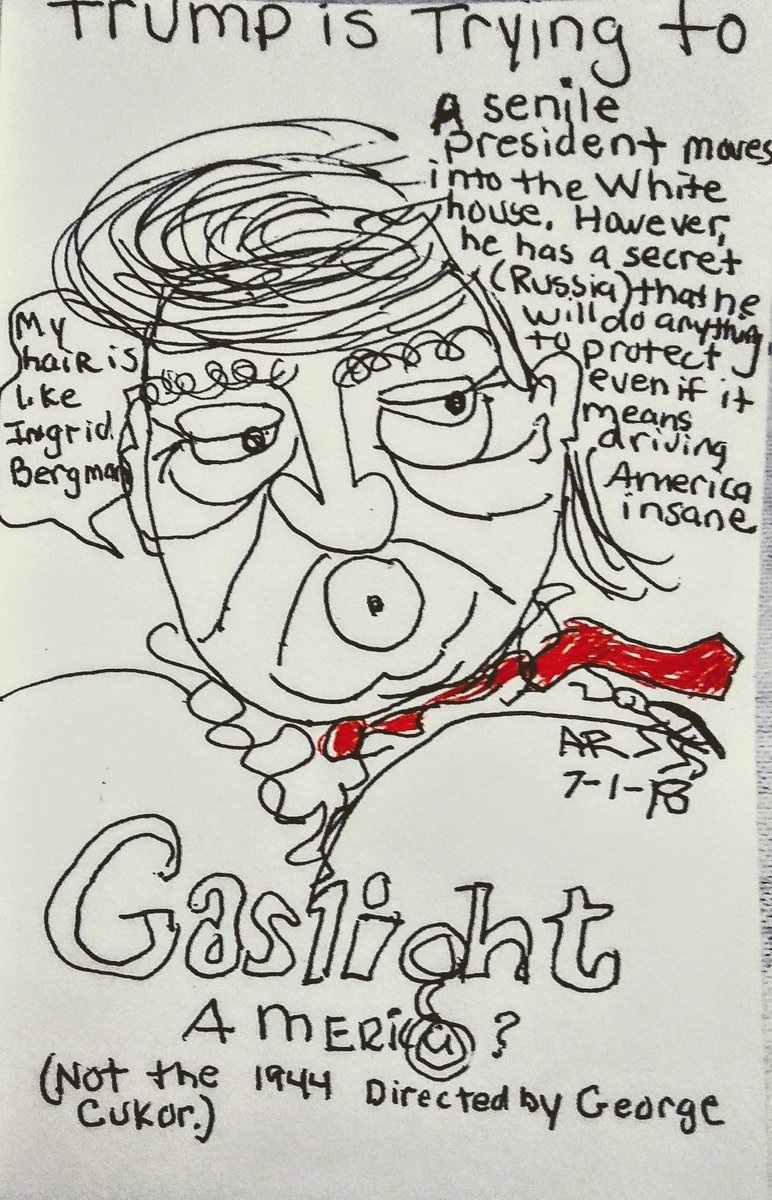 Trump is Trying to
A senile
president moves
into the White
house. However,
he has a secret
(Russia) that he
will do anything
to protect
even if it
means
driving
America
insane
My
hair is
like
Ingrid
Bergman
AR
7-1-18
Gaslight
AMERICA?
(Not the 1944 Directed by George
Cukor.)